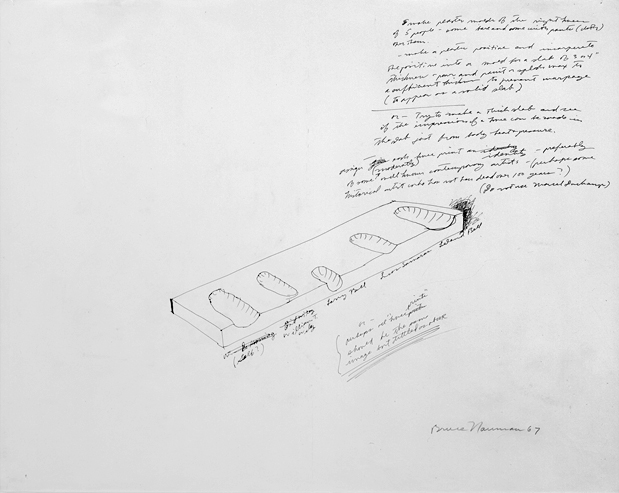 make plaster molds of the right knees
of 5 people - some bare and some with pants (cloth)
on them.
- make a plaster positive and incorporate
the positive into a mold for a slab of 3 or 4"
thickness - pour and paint or splash wax to
a sufficient thickness to prevent warpage
(to appear as a solid slab)
or - Try to make a thick slab and see
if the impression of a knee can be made in
the slab just from body heat & pressure.
assign each knee print an identity - preferably
(moderately)
of some well known contemporary artists - (perhaps some
historical artist who has not been dead over 100 years?)
(Do not use Marcel Duchamp)
Larry Bell
Leland Bell
(self?)
William
Wiley
or -
perhaps all "knee prints"
should be the same
image but titled
Bruce Nauman 67